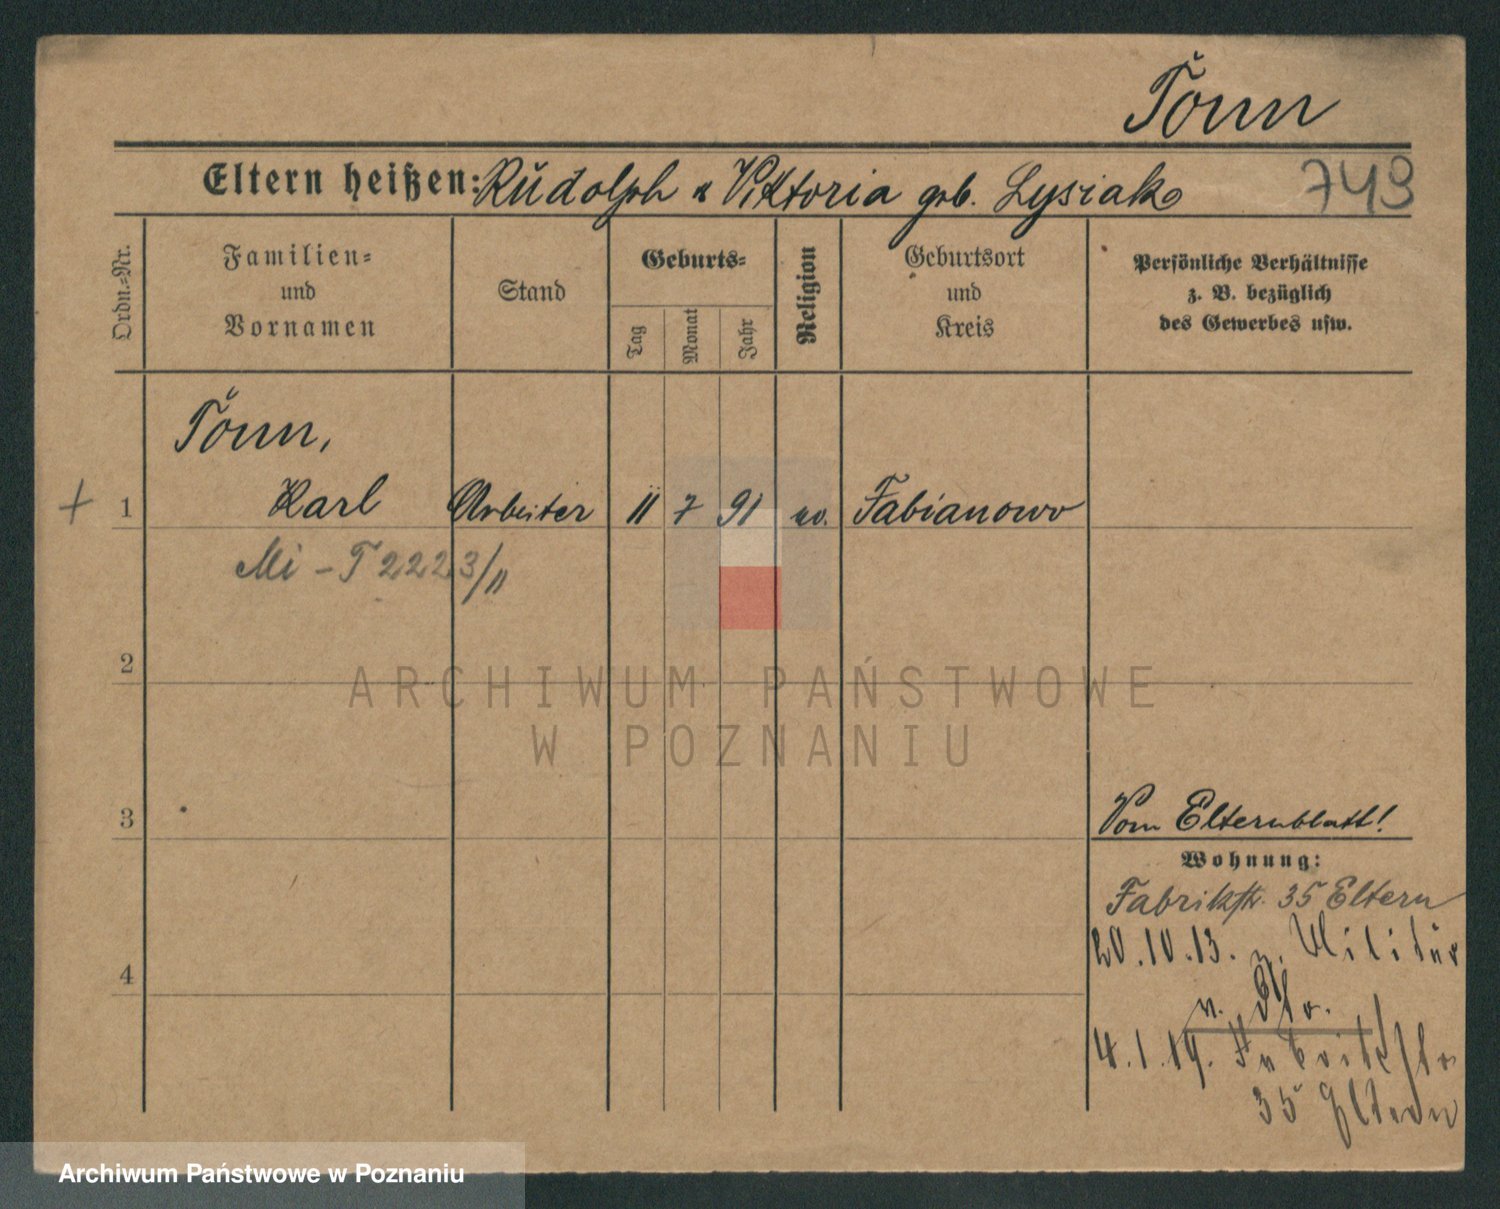 Tönn
Eltern heißen: Rudolph & Viktoria geb. Lysiak
749
Ordn.-Nr.
Familien- und Vornamen
Stand
Geburts-
Tag
Monat
Jahr
Religion
Geburtsort und Kreis
Persönliche Verhältnisse
z. B. bezüglich
des Gewerbes usw.
Tönn,
+ 1 Karl Arbeiter 11 7 91 ev. Fabianowo
Mi - T 2223/11
2
ARCHIWUM PAŃSTWOWE
W POZNANIU
3
Vom Elternblatt!
Wohnung:
Fabrikstr. 35 Eltern
20.10.13. z. Militär
4
4.1.19. Fabrikstr
35 Eltern
Archiwum Państwowe w Poznaniu